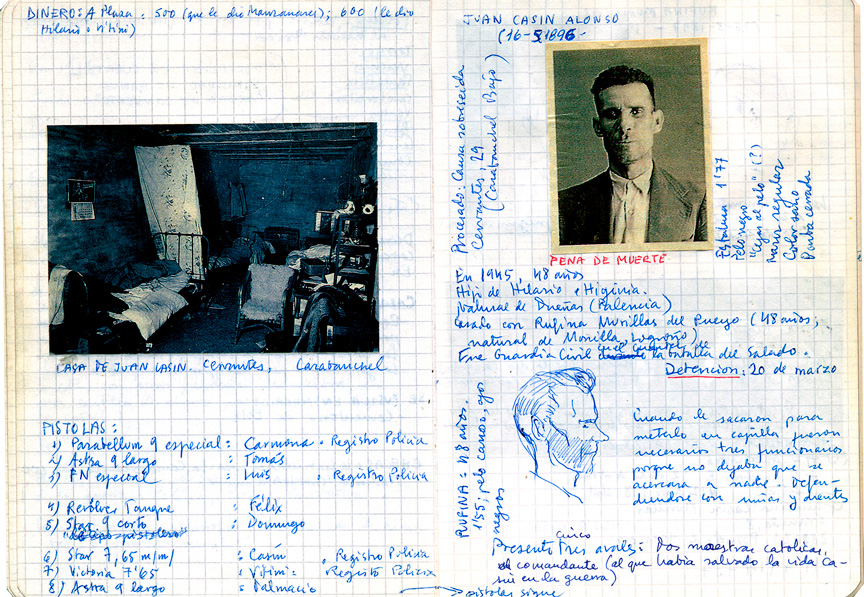 DINERO: A Plaza. 500 (que le dio Manzanares); 600 (le dio
Hilario o Vitini)
CASA DE JUAN CASIN. Cervantes, Carabanchel
PISTOLAS:
1) Parabellum 9 especial: Carmona. Registro Policía
2) Astra 9 largo : Tomás
3) FN especial : Luis . Registro Policía
4) Revólver Tanque : Félix
5) Star 9 corto : Domingo
6) Star 7,65 m/m/ : Casín . Registro Policía
7) Victoria 7'65 : Vitini: Registro Policía
8) Astra 9 largo : Dalmacio
JUAN CASIN ALONSO
(16-5-1896-
Procesado: Causa sobreseida
Cervantes, 29
(Carabanchel Bajo)
Estatura 1'77
Pelo negro
"Cejas al pelo" (?)
Nariz regular
Color sano
Barba cerrada
PENA DE MUERTE
En 1945, 48 años
Hijo de Hilario e Higinia.
Natural de Dueñas (Palencia)
Casado con Rufina Murillas del Pueyo (48 años;
natural de Morilla, Logroño)
Fue Guardia Civil en el cuartel de la batalla del Salado.
Detención: 20 de marzo
RUFINA: 48 años.
1'55; pelo canoso, ojos
negros
Cuando le sacaron para
meterlo en capilla fueron
necesarios tres funcionarios
porque no dejaba que se
acercara a nadie. Defen-
diendose con uñas y dientes
cinco
Presentó tres avales: Dos maestras catolicas,
el comandante (al que habia salvado la vida Ca-
sín en la guerra)
pistolas sigue